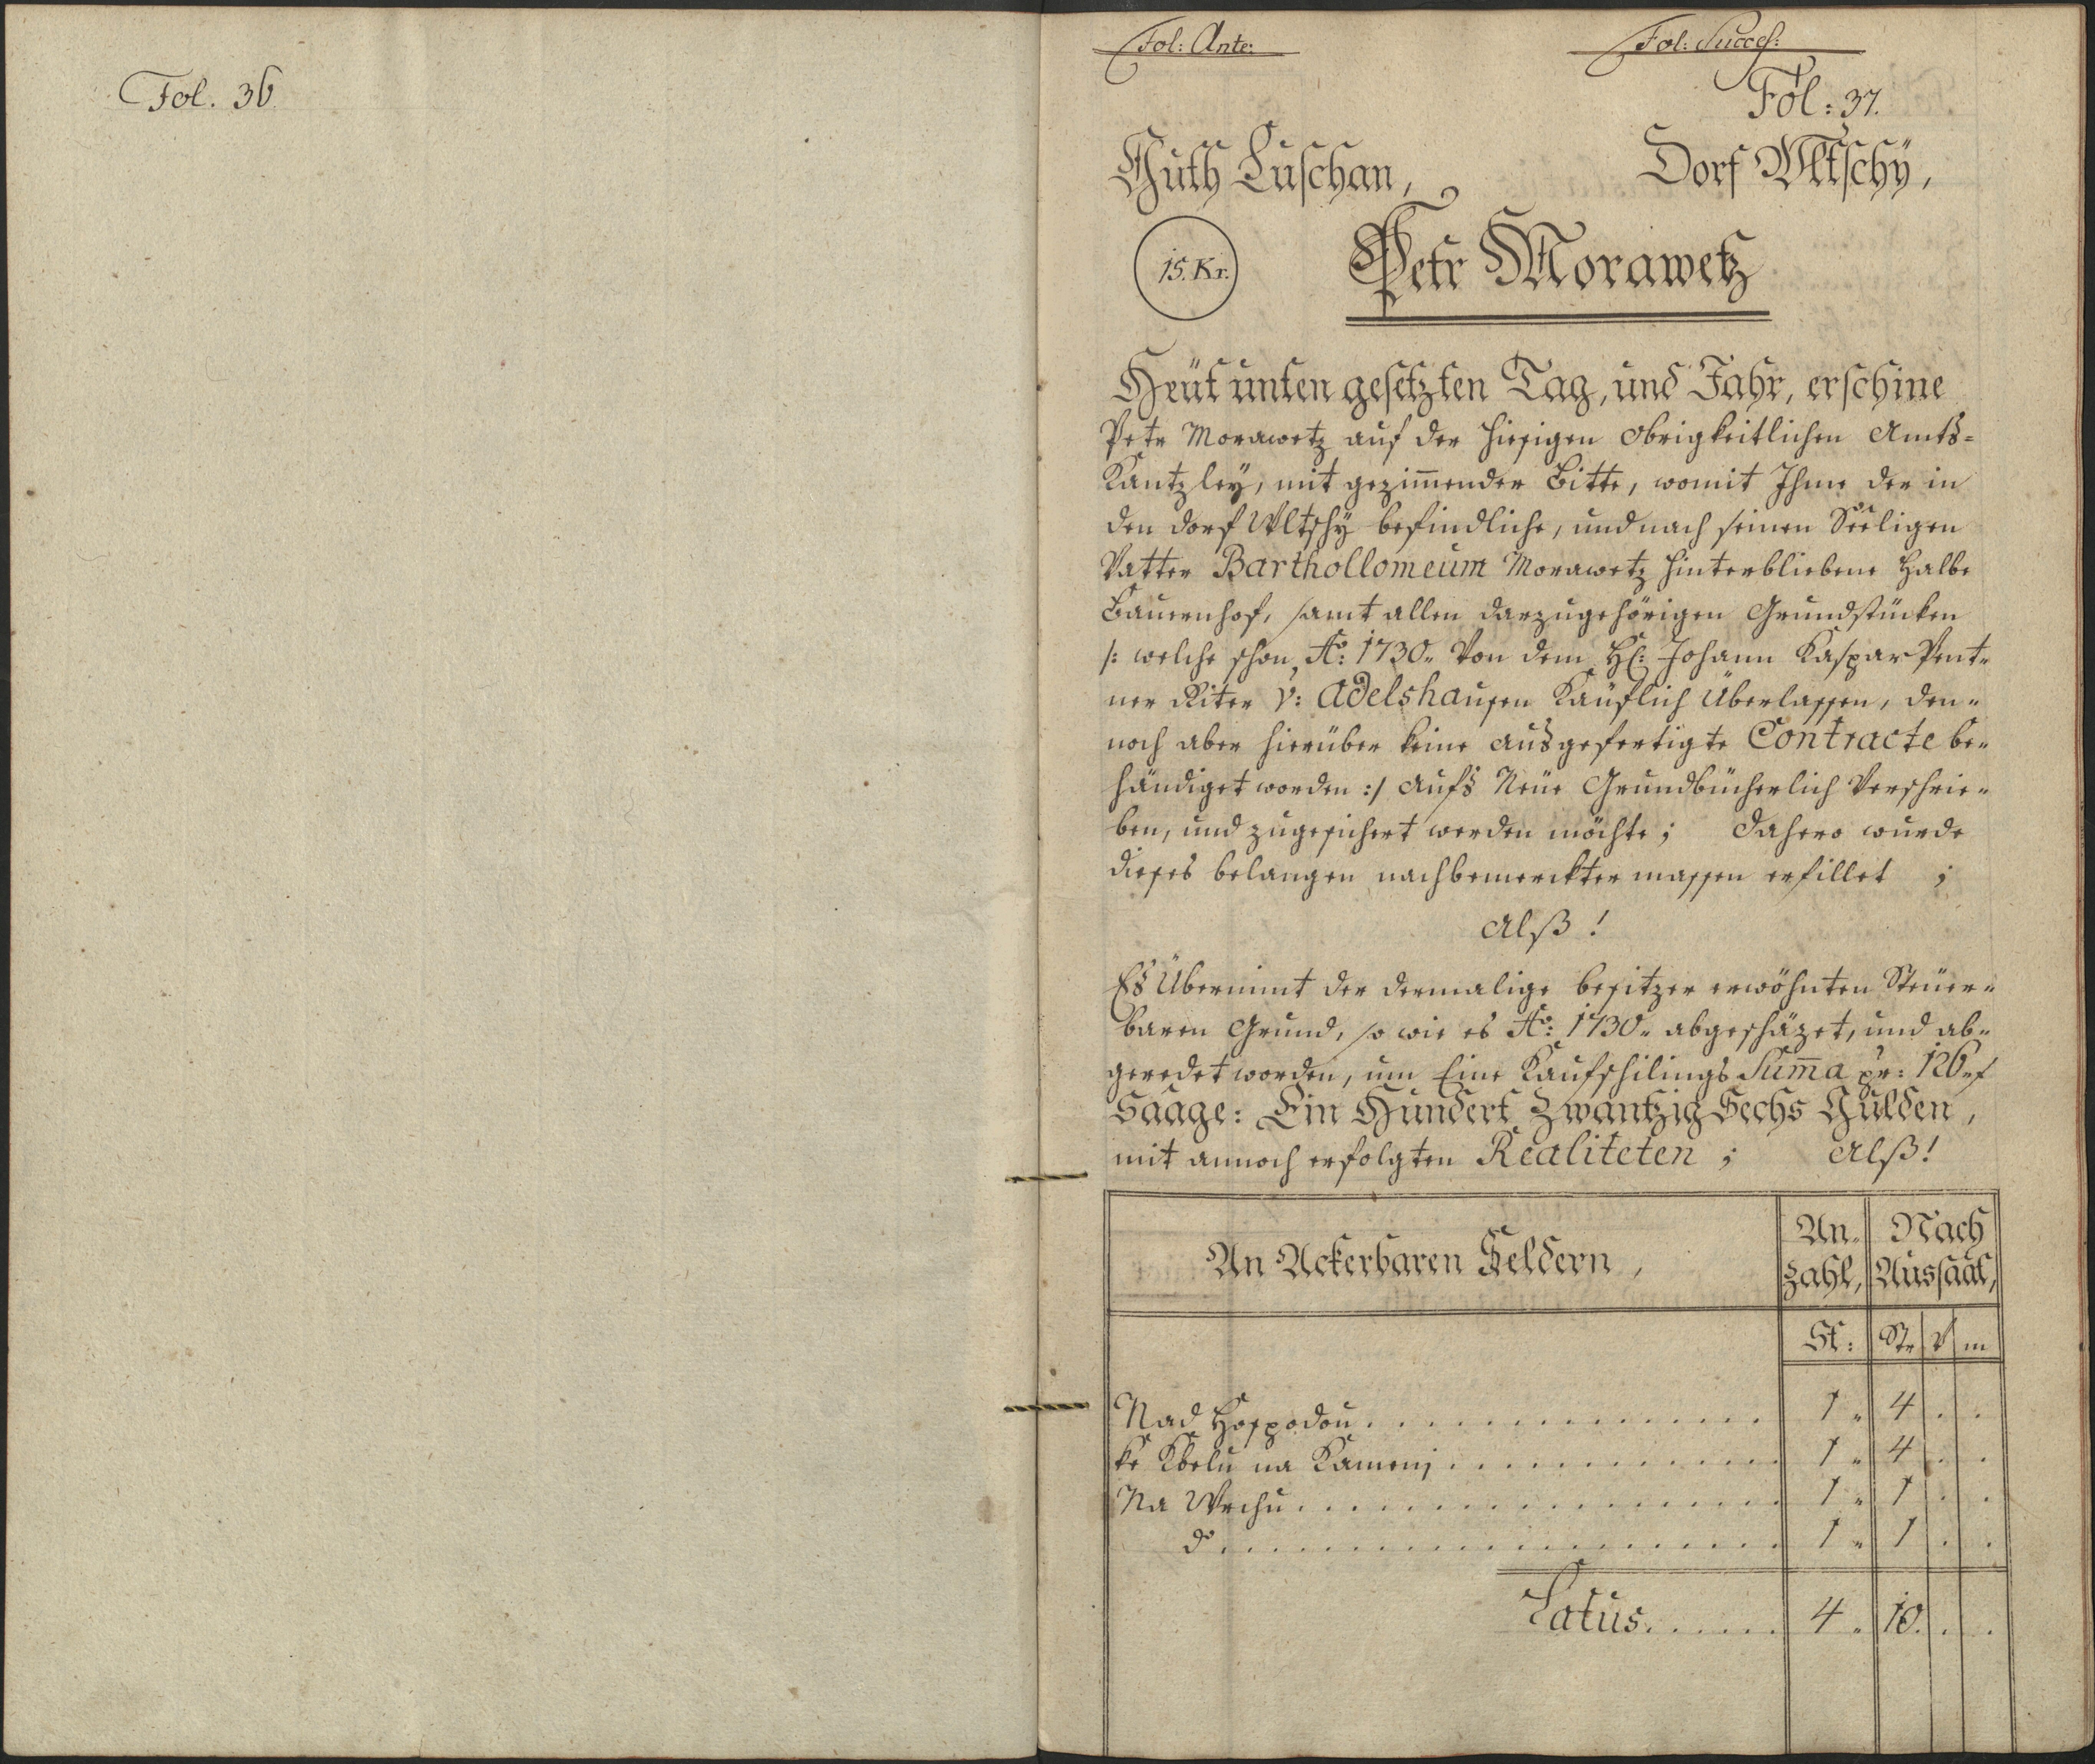 Fol. 36
Fol: Ante:
Fol: Succes:
Fol: 37.
Guth Luschan,
Dorf Wltschÿ,
15. Kr.
Petr Morawetz
Heüt unten gesetzten Tag, und Jahr, erschine
Petr Morawetz auf der hiesigen Obrigkeitlichen Amts=
Kantzleÿ, mit gezim̅ender Bitte, womit Ihme der in
den dorf Wltschÿ befindliche, und nach seinen Seeligen
Vatter Barthollomeum Morawetz hinterbliebene halbe
Bauernhof, samt allen darzugehörigen Grundstücken
/: welche schon Ao: 1730„ Von dem H: Johann Kaspar Pent„
ner Riter v: Adelshausen Kaüflich Überlassen, den„
noch aber hierüber keine ausgefertigte Contracte be„
händiget worden :/ aufs Neüe Grundbücherlich Verschrie„
ben, und zugesichert werden möchte; Dahero wurde
dieses belangen nachbemerckter massen erfillet ;
Alß !
Es Übernimt der dermalige besitzer erwöhnten Steüer„
baren Grund, so wie es Ao: 1730„ abgeschäzet, und ab„
geredet worden, um Eine Kaufschilings Sum̅a pr: 126„f
Saage: Ein Hundert Zwantzig Sechs Gulden,
mit annoch erfolgten Realiteten ; Alß!
An Ackerbaren Feldern,
An„ Nach
Zahl, Aussaat,
St: Str V m
Nad Hospodou . . . . . . 1 „ 4 . .
ke Kbelu na Kamenj . . . . . . 1 „ 4 . .
Na Wrchu . . . . . . 1 „ 1 . .
do . . . . . . 1 „ 1 . .
Latus . . . . . . 4 „ 10 . .